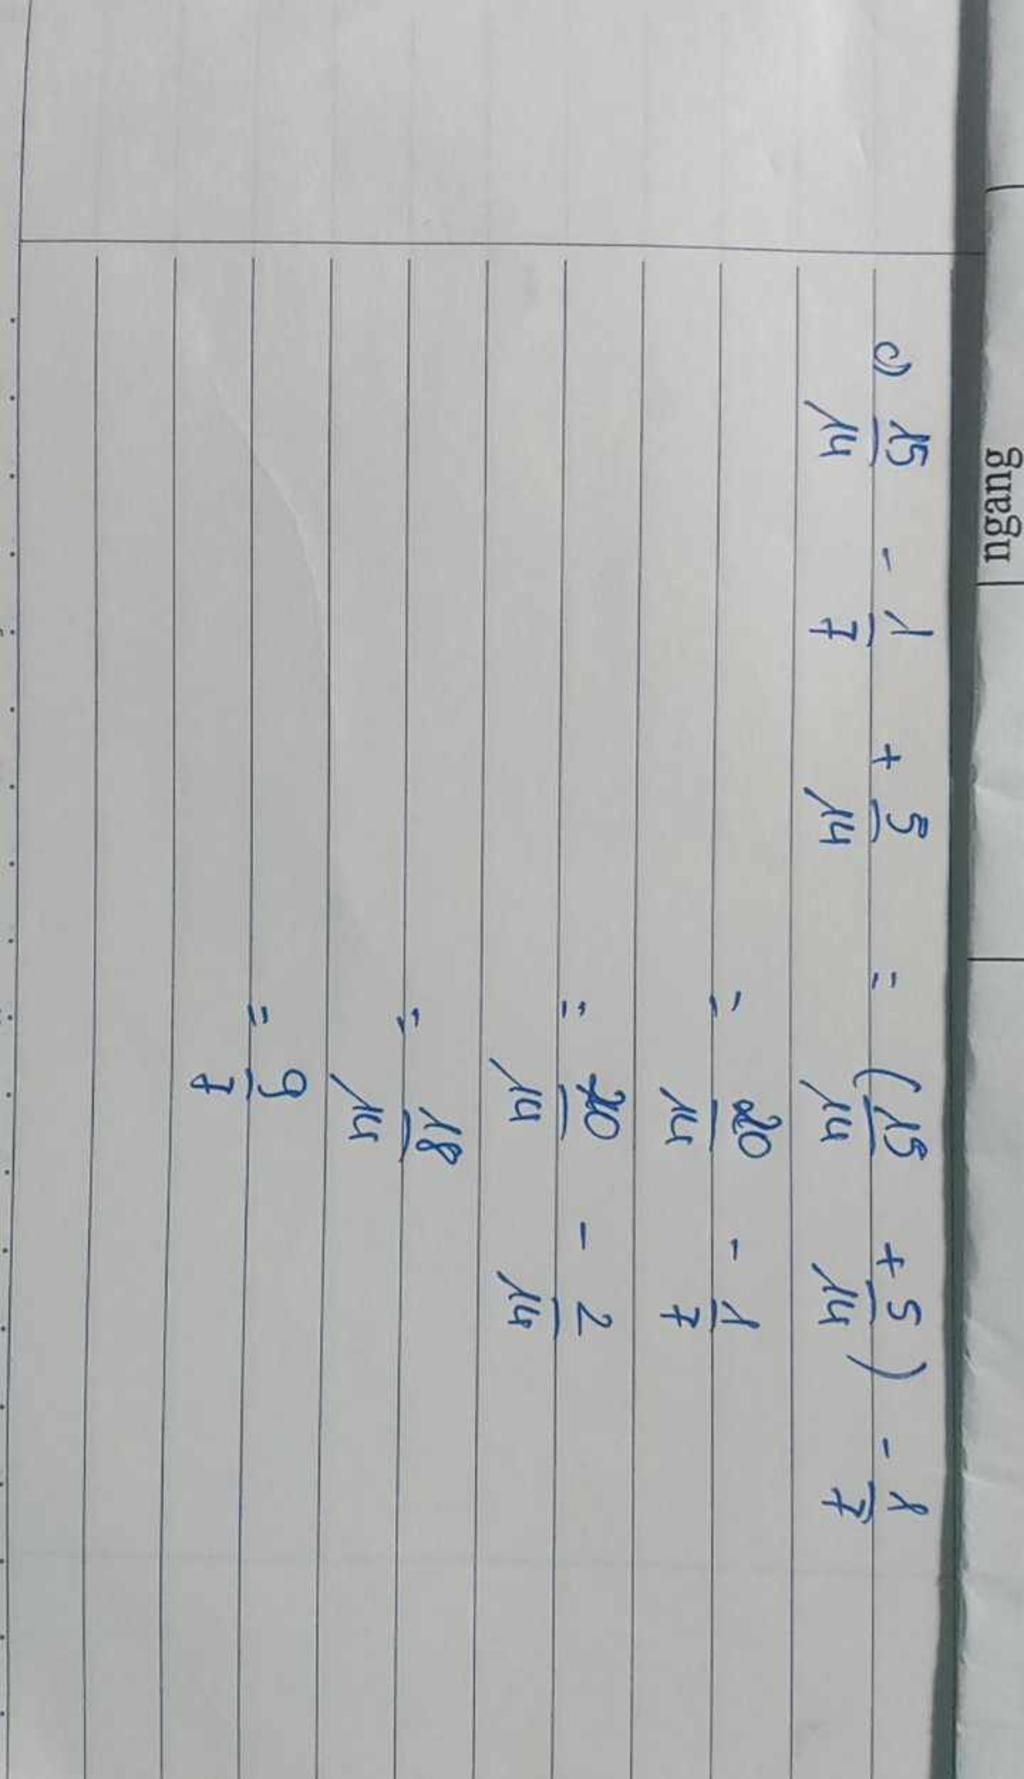 ngang
c) 15/14 - 1/7 + 5/14 = (15/14 + 5/14) - 1/7
= 20/14 - 1/7
= 20/14 - 2/14
= 18/14
= 9/7